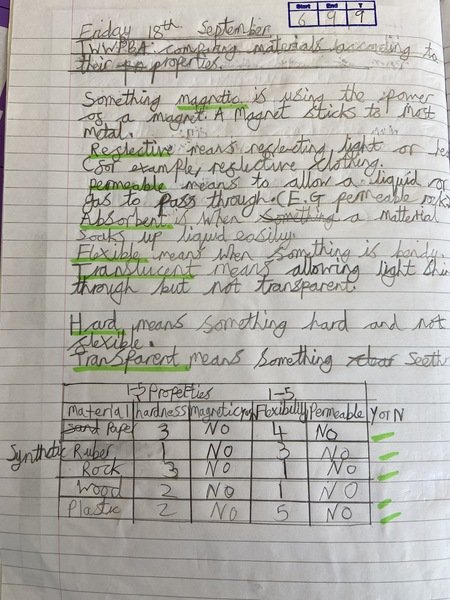 Start End T
6 9 9
Friday 18th September
TWWPBA: compuing materials according to
their pn properties.
Something magnetic is using the power
of a magnet. A Magnet sticks to most
metal.
Reglective means reglecting light or
(for example, reglective clothing.
permeable means to allow a liquid or
gas to pass through. (E.G permeable
Absorbent is when something a matterial
Soaks up liquid easily.
Flexible means when something is bendy.
Translucent means allowing light
through but not transparent.
Hard means something hard and not
flexible.
Transparent means something clear Seeth
1-5 Propeties 1-5
material hardness magnetic Flexibility Permeable Y or N
Sand Paper 3 NO 4 NO
Synthetic Ruber 1 NO 3 NO
Rock 3 NO 1 NO
Wood 2 NO 1 NO
Plastic 2 NO 5 NO